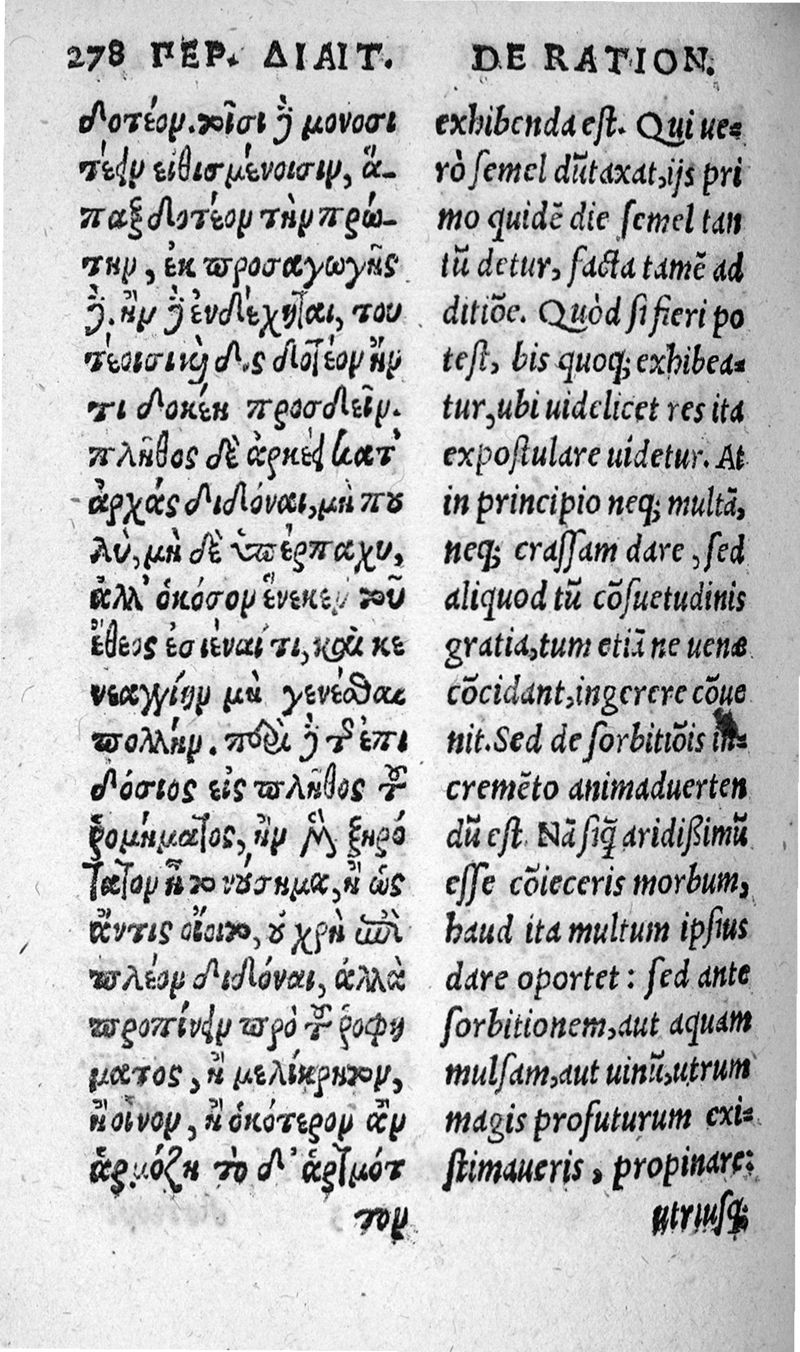 278 ΠΕΡ. ΔΙΑΙΤ.
δοτέον. τοῖσι δὲ μονοσι
τεῖν εἰθισμένοισιν, ἅ-
παξ δοτέον τὴν πρώ-
την, ἐκ προσαγωγῆς
δὲ. ἢν δὲ ἐνδέχηται, του
τέοισι καὶ δὶς δοτέον ἤν
τι δοκέη προσδεῖν.
πλῆθος δὲ ἀρκεῖ κατ'
ἀρχὰς διδόναι, μὴ που
λὺ, μὴ δὲ ὑπέρπαχυ,
ἀλλ' ὁκόσον ἕνεκεν τοῦ
ἔθεος ἐσιέναί τι, καὶ κε
νεαγγίην μὴ γενέσθαι
πολλήν. περὶ δὲ τῆς ἐπι
δόσιος εἰς πλῆθος τοῦ
ῥομήματος, ἢν μὲν ξηρό
τατον ᾖ τὸ νούσημα, ἢ ὡς
ἄντις οἴοιτο, οὐ χρὴ ἐπὶ
πλέον διδόναι, ἀλλὰ
προπίνειν πρὸ τοῦ ῥοφή
ματος, ἢ μελίκρητον,
ἢ οἶνον, ἢ ὁκότερον ἂν
ἁρμόζῃ τὸ δ' ἁρμότ
τον
DE RATION.
exhibenda est. Qui ue=
rò semel dūtaxat, ijs pri
mo quidē die semel tan
tū detur, facta tamē ad
ditiōe. Quòd si fieri po
test, bis quoq; exhibea=
tur, ubi uidelicet res ita
expostulare uidetur. At
in principio neq; multā,
neq; crassam dare, sed
aliquod tū cōsuetudinis
gratia, tum etiā ne uenæ
cōcidant, ingerere cōue
nit. Sed de sorbitiōis in=
cremēto animaduerten
dū est. Nā siq̄ aridißimū
esse cōieceris morbum,
haud ita multum ipsius
dare oportet: sed ante
sorbitionem, aut aquam
mulsam, aut uinū, utrum
magis profuturum exi=
stimaueris, propinare:
utriusq;